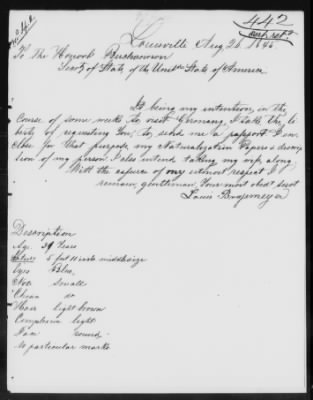 442
Louisville Aug 26 1846
To The Honorb Buchannon
Secrty of State of the Unitd State of America
It being my intention, in the
Course of some weeks to visit Germany, I take the li-
berty of requesting You, to send me a passport I en-
close for that purpose, my Naturalization Papers & discrip-
tion of my person. I also intend taking my wife along;
With the assurance of my utmost respect I
remain, gentleman, Your most obed servt
Louis
Description
Age 39 Years
5 feet 11 inch middlesize
Eyes Blue
Nose Small
Chinn do
Hair light brown
Complexion light
Face round
No particular marks